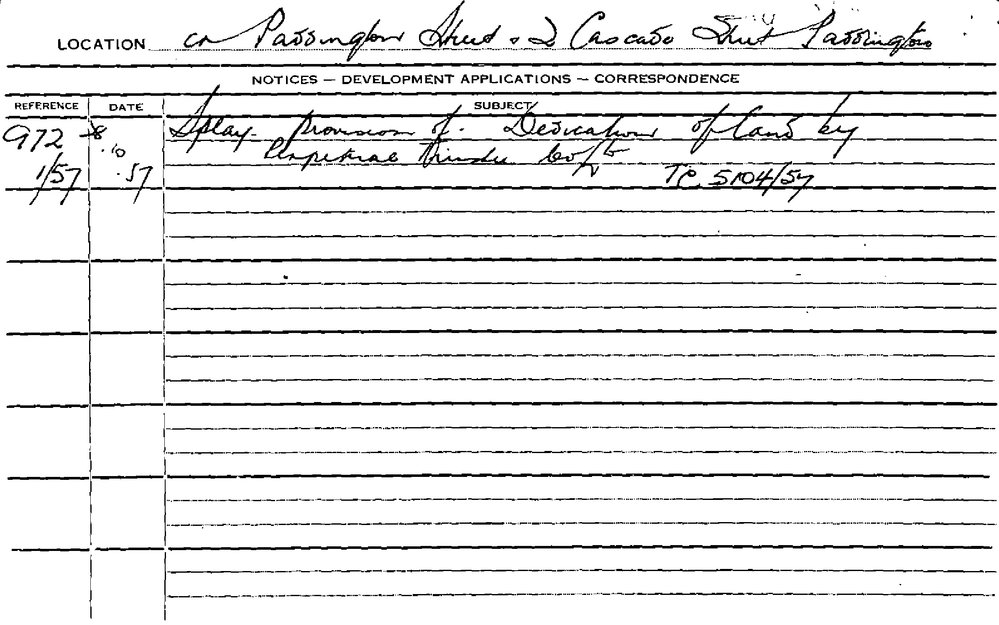 LOCATION cr Paddington Street & 2 Cascade Street Paddington
NOTICES — DEVELOPMENT APPLICATIONS — CORRESPONDENCE
REFERENCE DATE SUBJECT
972 8 Splay- Provision of. Dedication of land by
.10 Perpetual Trustee Co/
1/57 .57 TP. 5104/57